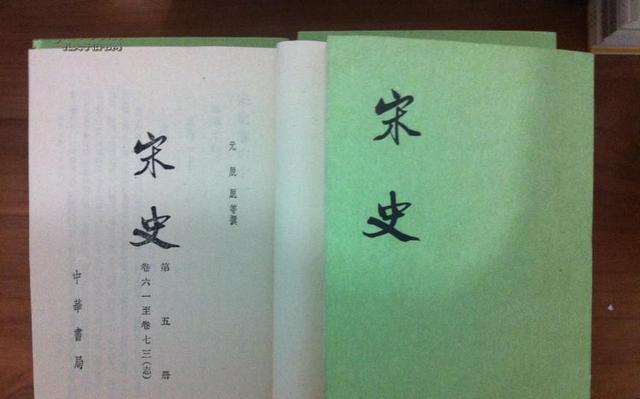 宋史
元 脱脱等撰
宋史
第五册
卷六一至卷七三(志)
中華書局